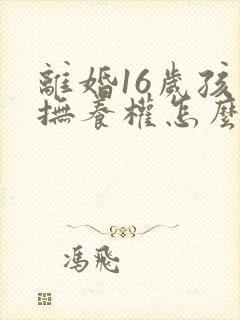 離婚16歲孩
撫養權怎麼
馮飛